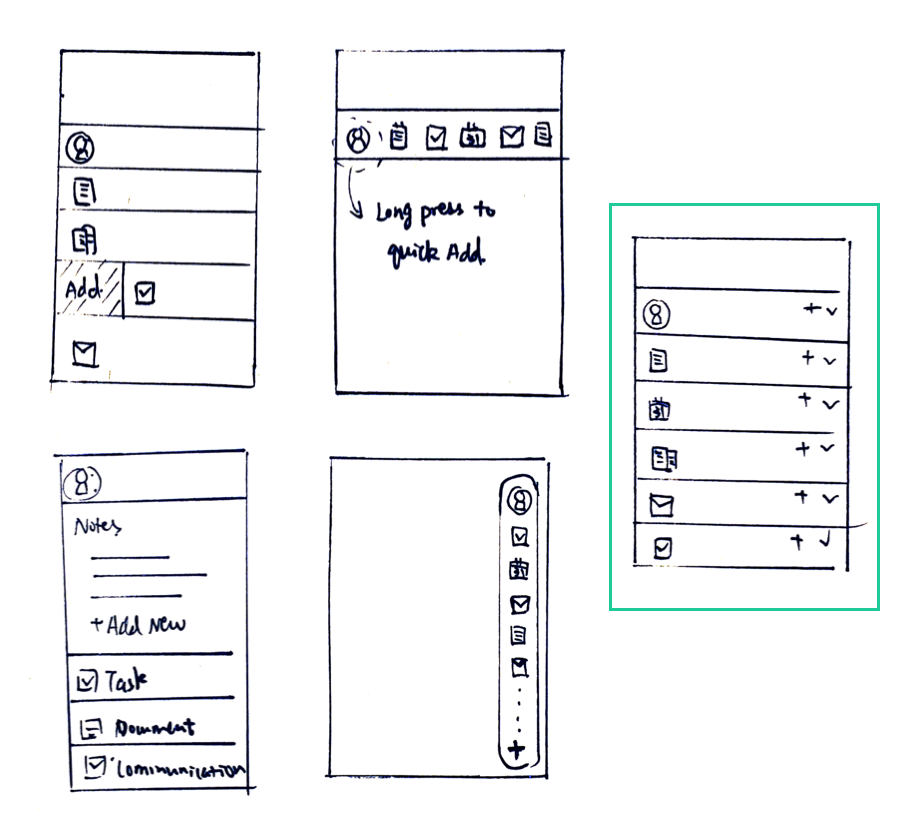 Add
Long press to
quick Add.
31
31
Notes
+ Add New
Task
Document
Communication
31